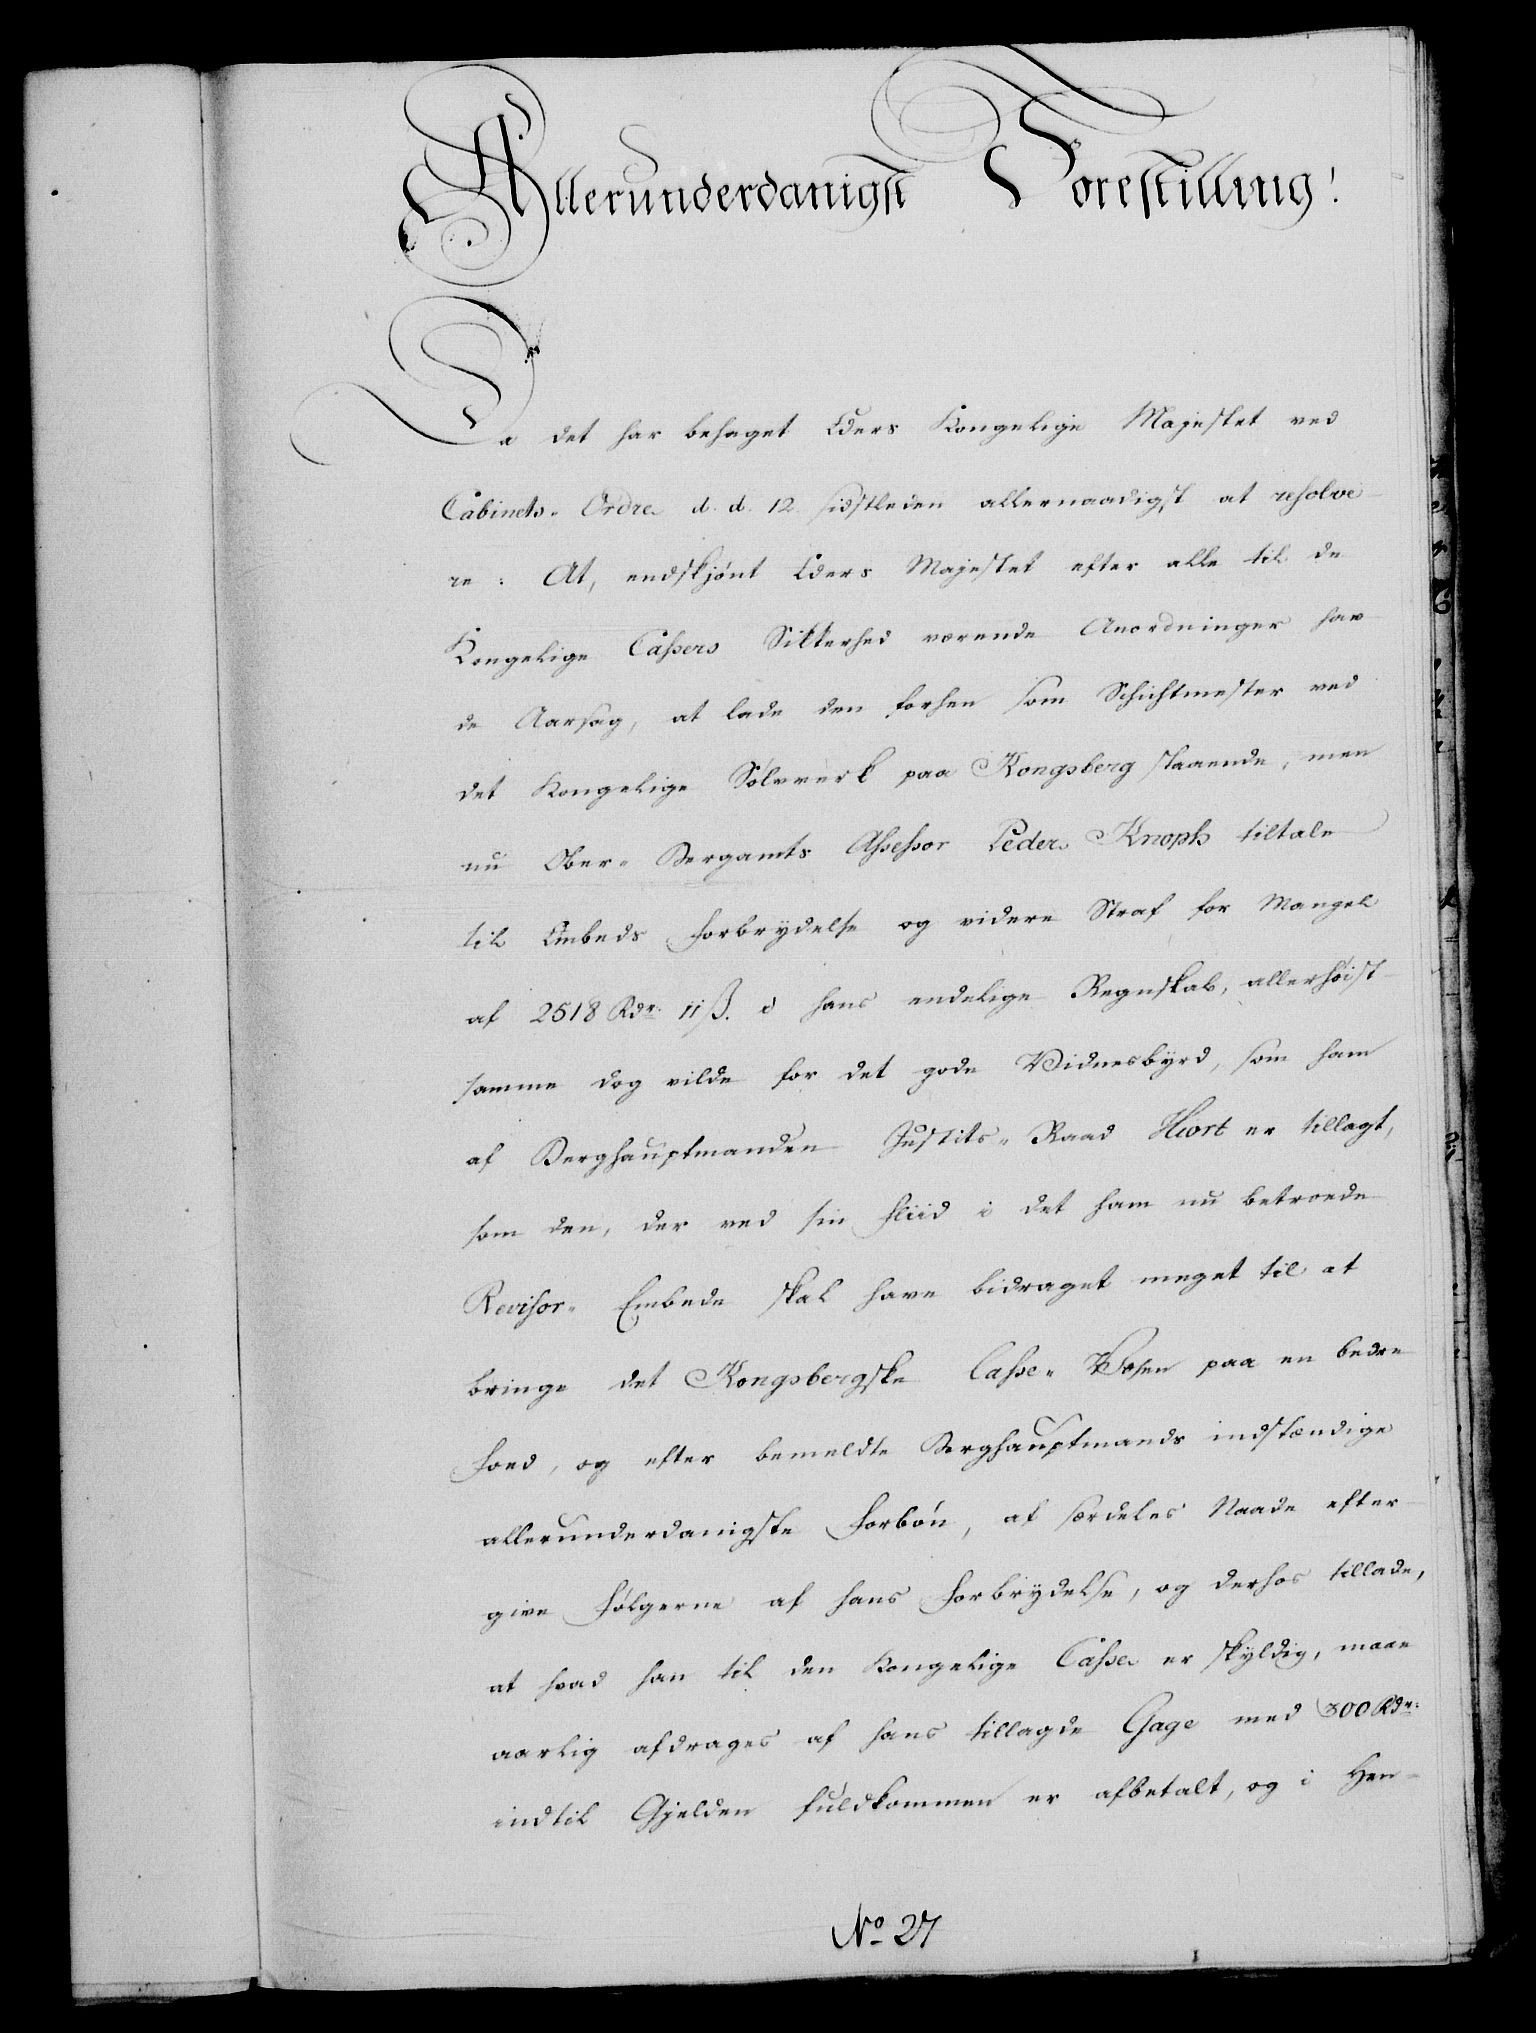 Allerunderdanigst Forestilling!
Da det har behaget Eders Kongelige Majestet ved
Cabinets-Ordre d. d. 12 sidstleden allernaadigst at resolve-
re: At, endskjönt Eders Majestet efter alle til de
Kongelige Cassers Sikkerhed værende Anordninger hav-
de Aarsag, at lade den forhen som Schichtmester ved
det Kongelige Sølvverk paa Kongsberg staaende, men
nu Ober-Bergamts Assessor Peder Knoph tiltale
til Embeds Forbrydelse og videre Straf for Mangel
af 2518 Rdr. 11 ß. i hans endelige Regnskab, allerhöist-
samme dog vilde for det gode Vidnesbyrd, som ham
af Berghauptmanden Justits-Raad Hiort er tillagt,
som den, der ved sin Fliid i det ham nu betroede
Revisor-Embede skal have bidraget meget til at
bringe det Kongsbergske Casse-Væsen paa en bedre
Foed, og efter bemeldte Berghauptmands indstændige
allerunderdanigste Forbön, af særdeles Naade efter-
give Fölgerne af hans Forbrydelse, og derhos tillade,
at hvad han til den Kongelige Casse er skyldig, maae
aarlig afdrages af hans tillagde Gage med 300 Rdr.
indtil Gjelden fuldkommen er afbetalt, og i Hen-
No 27